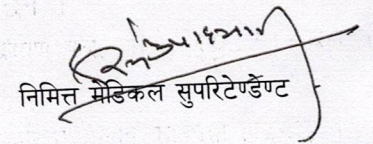 निमित्त मेडिकल सुपरिटेण्डेण्ट